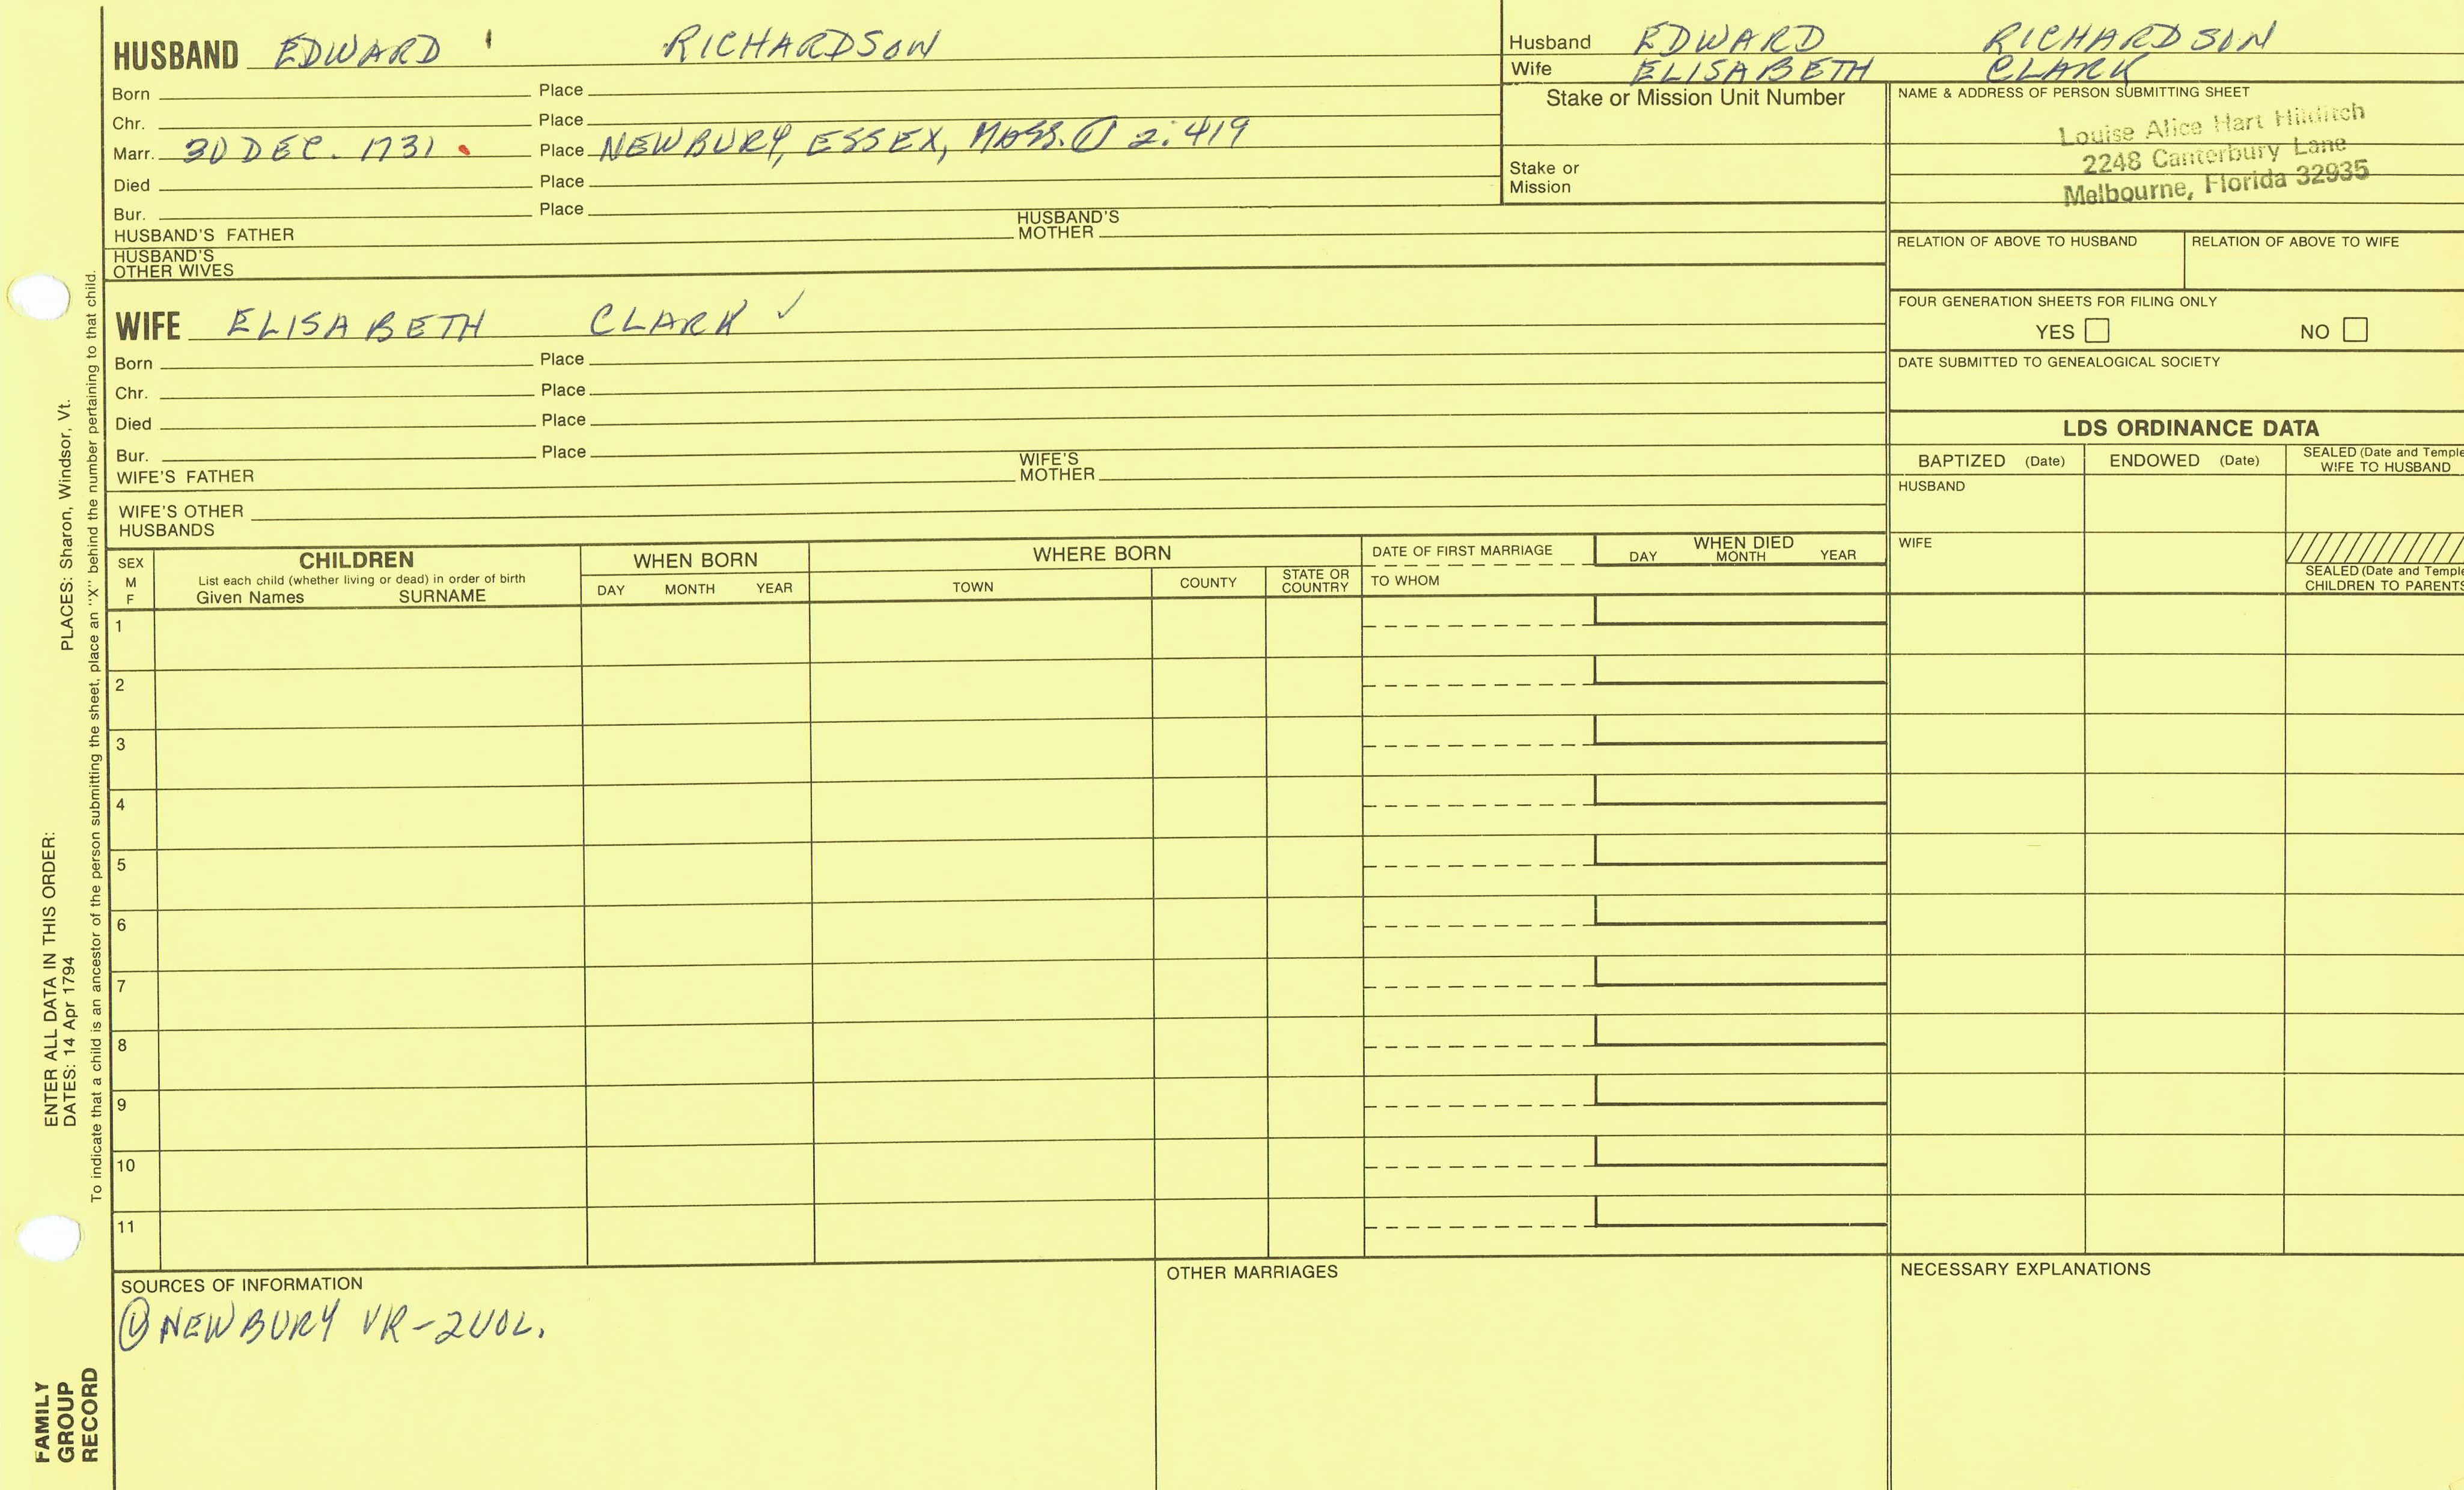 HUSBAND EDWARD RICHARDSON
Born Place
Chr. Place
Marr. 30 DEC. 1731 Place NEWBURY, ESSEX, MASS. ① 2:419
Died Place
Bur. Place
HUSBAND'S FATHER HUSBAND'S MOTHER
HUSBAND'S OTHER WIVES
Husband EDWARD RICHARDSON
Wife ELISABETH CLARK
Stake or Mission Unit Number
Stake or Mission
NAME & ADDRESS OF PERSON SUBMITTING SHEET
Louise Alice Hart Hilditch
2248 Canterbury Lane
Melbourne, Florida 32935
RELATION OF ABOVE TO HUSBAND RELATION OF ABOVE TO WIFE
FOUR GENERATION SHEETS FOR FILING ONLY
YES NO
DATE SUBMITTED TO GENEALOGICAL SOCIETY
WIFE ELISABETH CLARK ✓
Born Place
Chr. Place
Died Place
Bur. Place
WIFE'S FATHER WIFE'S MOTHER
WIFE'S OTHER HUSBANDS
LDS ORDINANCE DATA
BAPTIZED (Date) ENDOWED (Date) SEALED (Date and Temple
WIFE TO HUSBAND
HUSBAND
WIFE
SEALED (Date and Temple
CHILDREN TO PARENTS
SEX
M
F
CHILDREN
List each child (whether living or dead) in order of birth
Given Names SURNAME
WHEN BORN
DAY MONTH YEAR
WHERE BORN
TOWN COUNTY STATE OR COUNTRY
DATE OF FIRST MARRIAGE
TO WHOM
WHEN DIED
DAY MONTH YEAR
1
2
3
4
5
6
7
8
9
10
11
SOURCES OF INFORMATION
① NEWBURY VR-2VOL.
OTHER MARRIAGES
NECESSARY EXPLANATIONS
ENTER ALL DATA IN THIS ORDER:
DATES: 14 Apr 1794 PLACES: Sharon, Windsor, Vt.
To indicate that a child is an ancestor of the person submitting the sheet, place an "X" behind the number pertaining to that child.
FAMILY
GROUP
RECORD